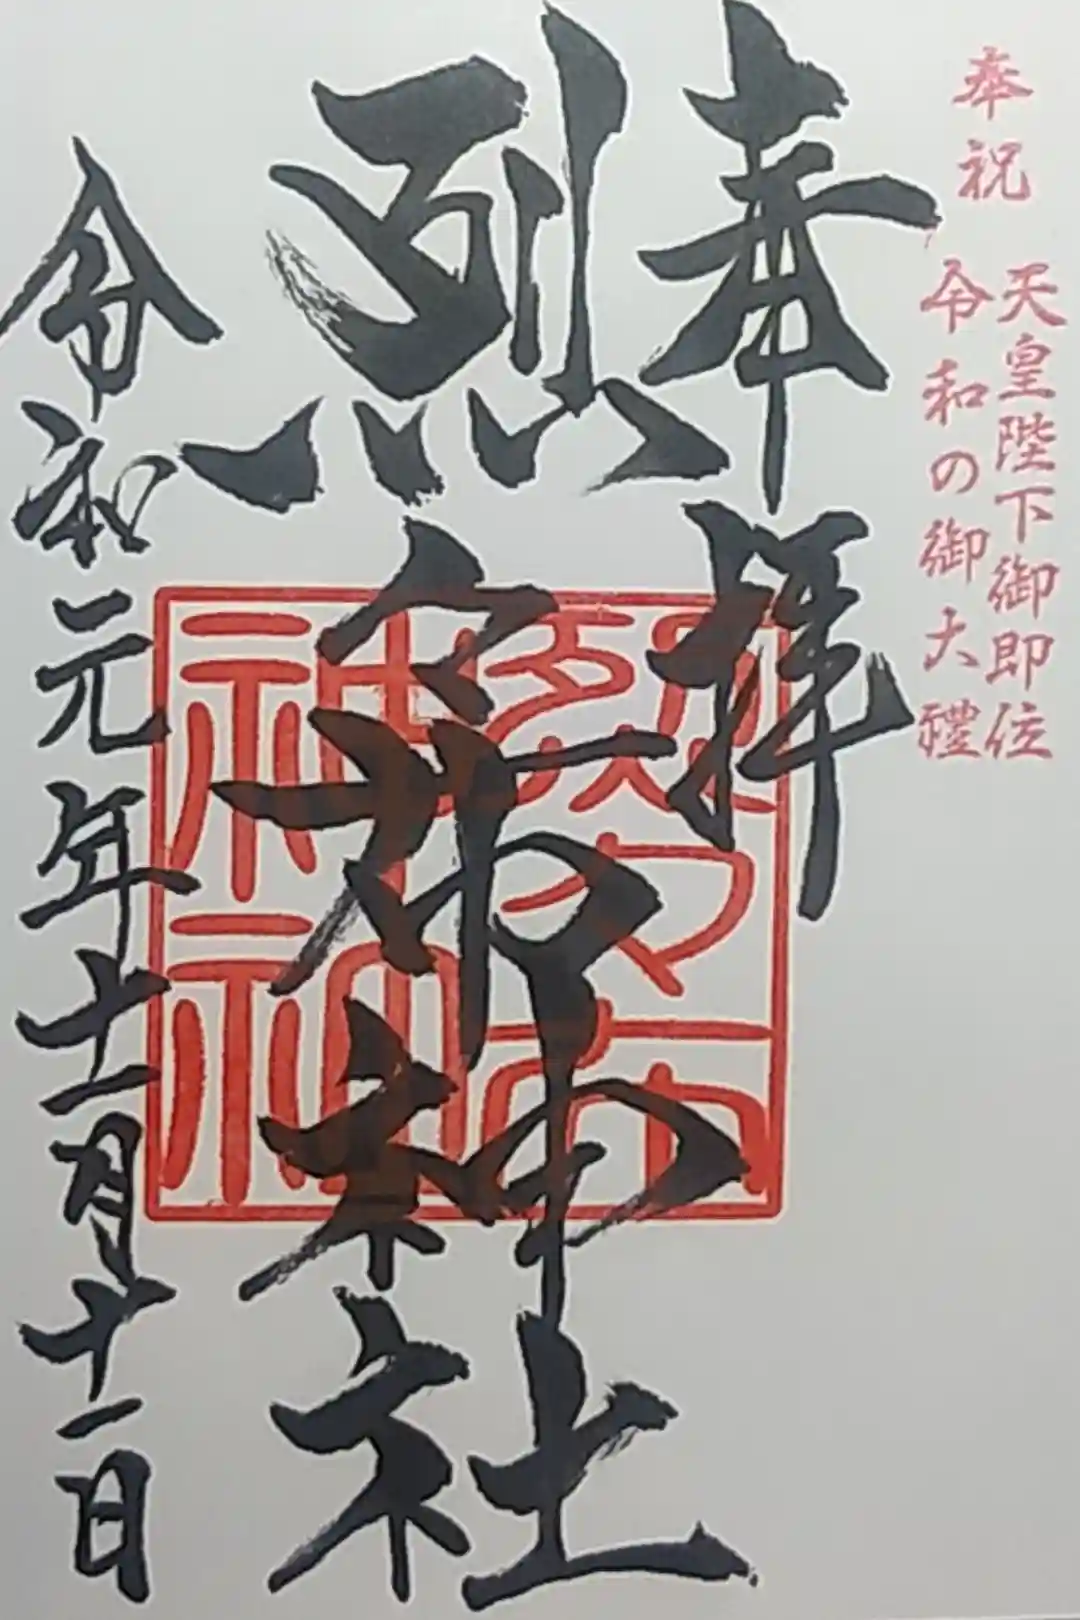 奉祝
天皇陛下御即位
令和の御大禮
奉拝
烈々布神社
令和元年十一月十一日